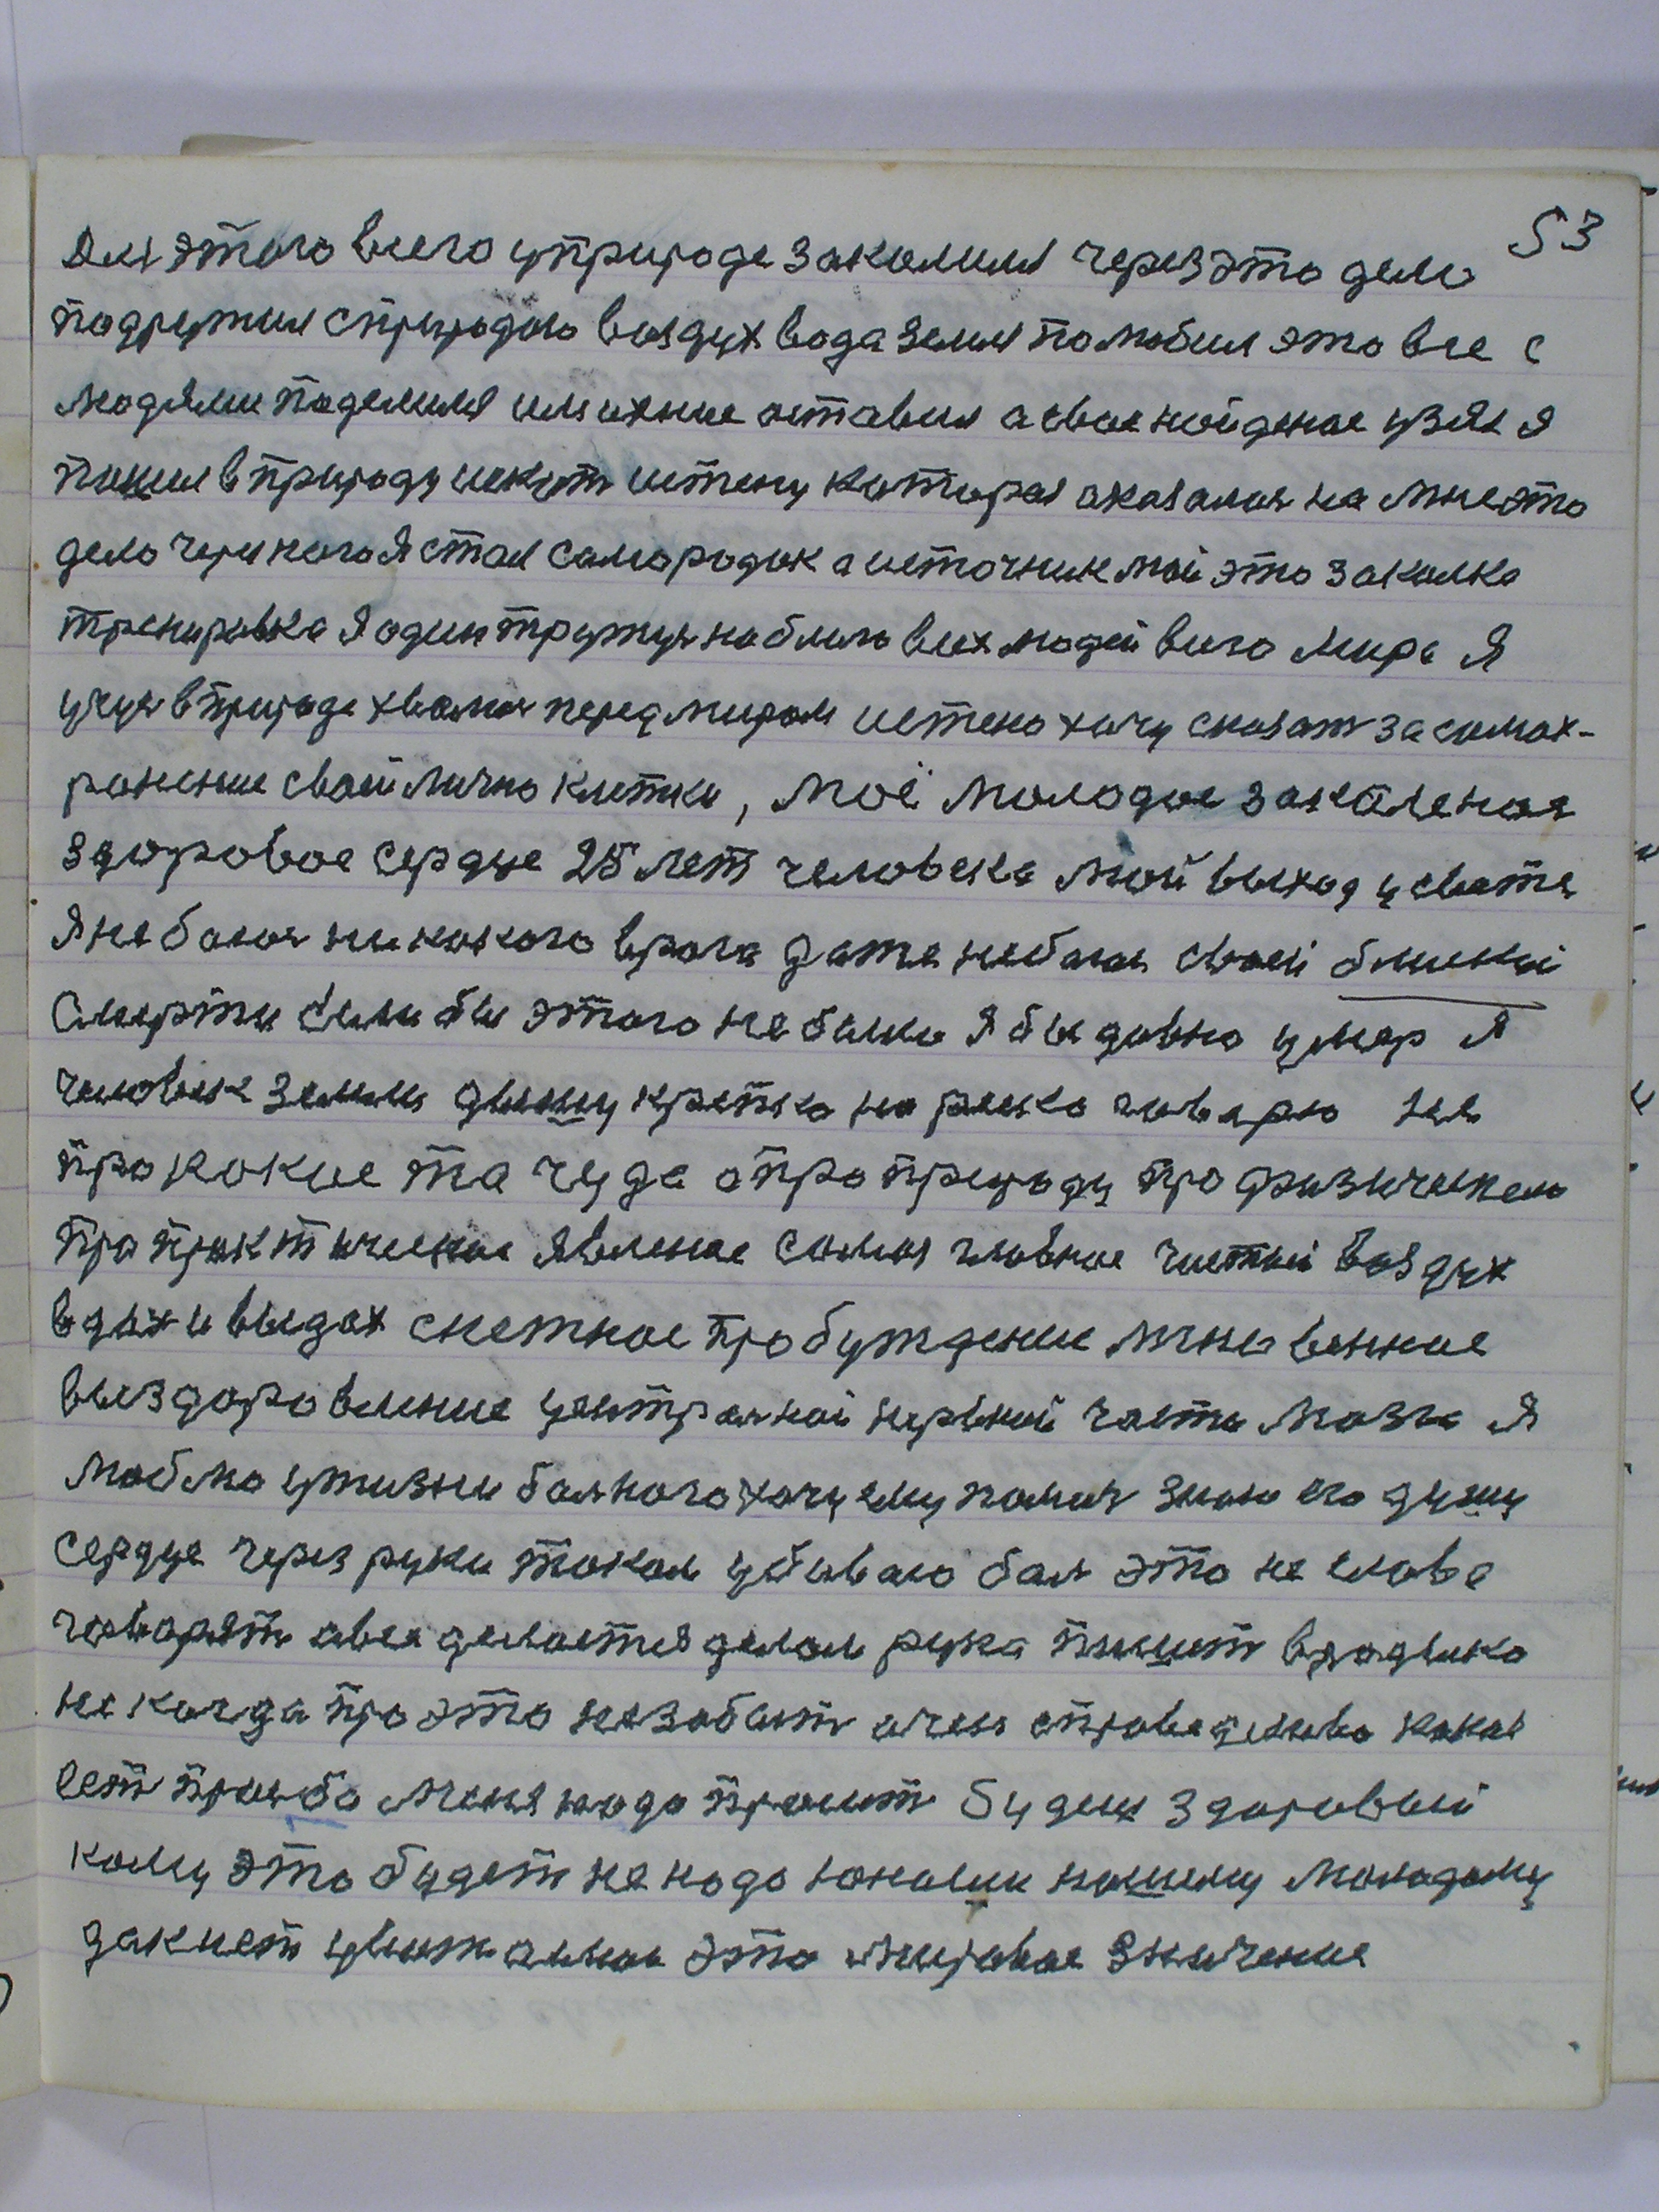 53
для этого всего у природе закалился через это дело
подружил с природою воздух вода земля полюбил это все с
людями поделился им ихние оставил а свое найденое узял я
пошел в природу искат истену каторая оказалася на мне это
дело чего я стал самородок а источник мой это закалка
тренировка я один тружуся на благо всех людей всего мира я
учуся в природе хвалюся перед миром истено хочу сказат за самох-
ранение своей лично клетки, моё молодое закаленая
здоровое сердце 25 лет человека мой выход у свете
я не боюся никакого врага даже не боюся своей близкой
смерти если бы этого не было я бы давно умер я
человек земли дышу крепко но резко говарю не
про какие та чуда а про природу про физическою
про практическое явленое самоя главное чистый воздух
вдох и выдох снежное пробуждение мгнавенное
выздоровление централной нервной часть мозга я
люблю у жизни балного хочу ему помоч знаю его душу
сердце через руки током убиваю бол это не слова
говорят а все делается делом рука пишет владыко
не когда про это не забыт очень справедливо какая
ест прозба меня надо просит будеш здоровый
кому это будет не надо юношы нашему молодому
да кнет это мировое значение